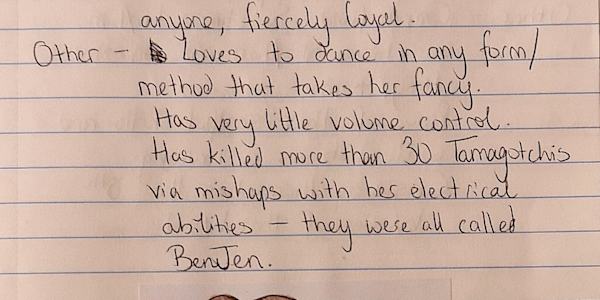 anyone, fiercely loyal.
Other - Loves to dance in any form/
method that takes her fancy.
Has very little volume control.
Has killed more than 30 Tamagotchis
via mishaps with her electrical
abilities - they were all called
BenJen.